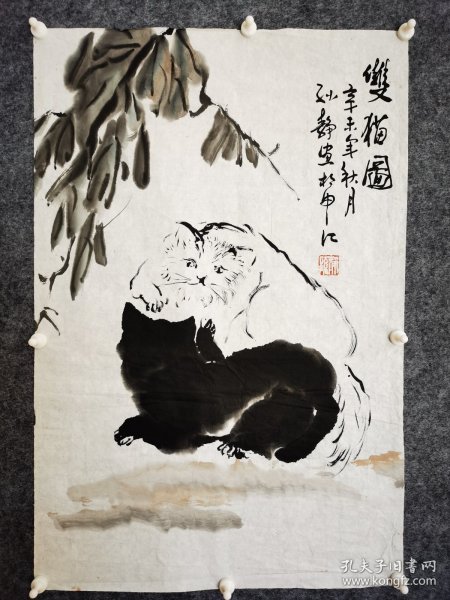 雙猫圖
辛未年秋月
孙静画於申江
孔夫子旧书网
www.kongfz.com